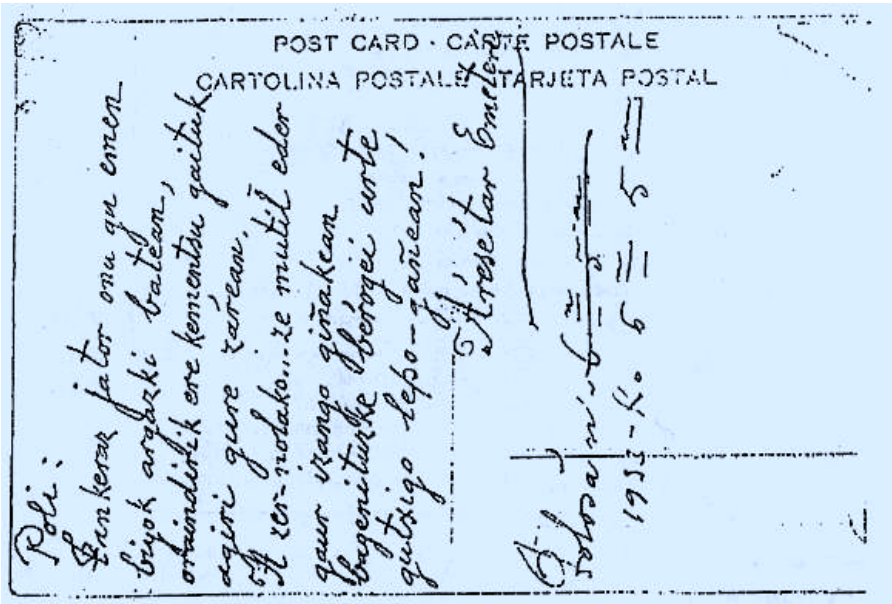 POST CARD · CARTE POSTALE
CARTOLINA POSTALE TARJETA POSTAL
Poli:
jator onu gu emen
biyok argazki batean,
oraindirik ere kementsu gaituk
agiri gure zárean.
A zer-nolako... ze mutil eder
gaur izango giñakean
bagenituzke berogei urte
gutxigo lepo-gañean!
Aresetar Emeteri
Tolosan
1953-K. 6 5